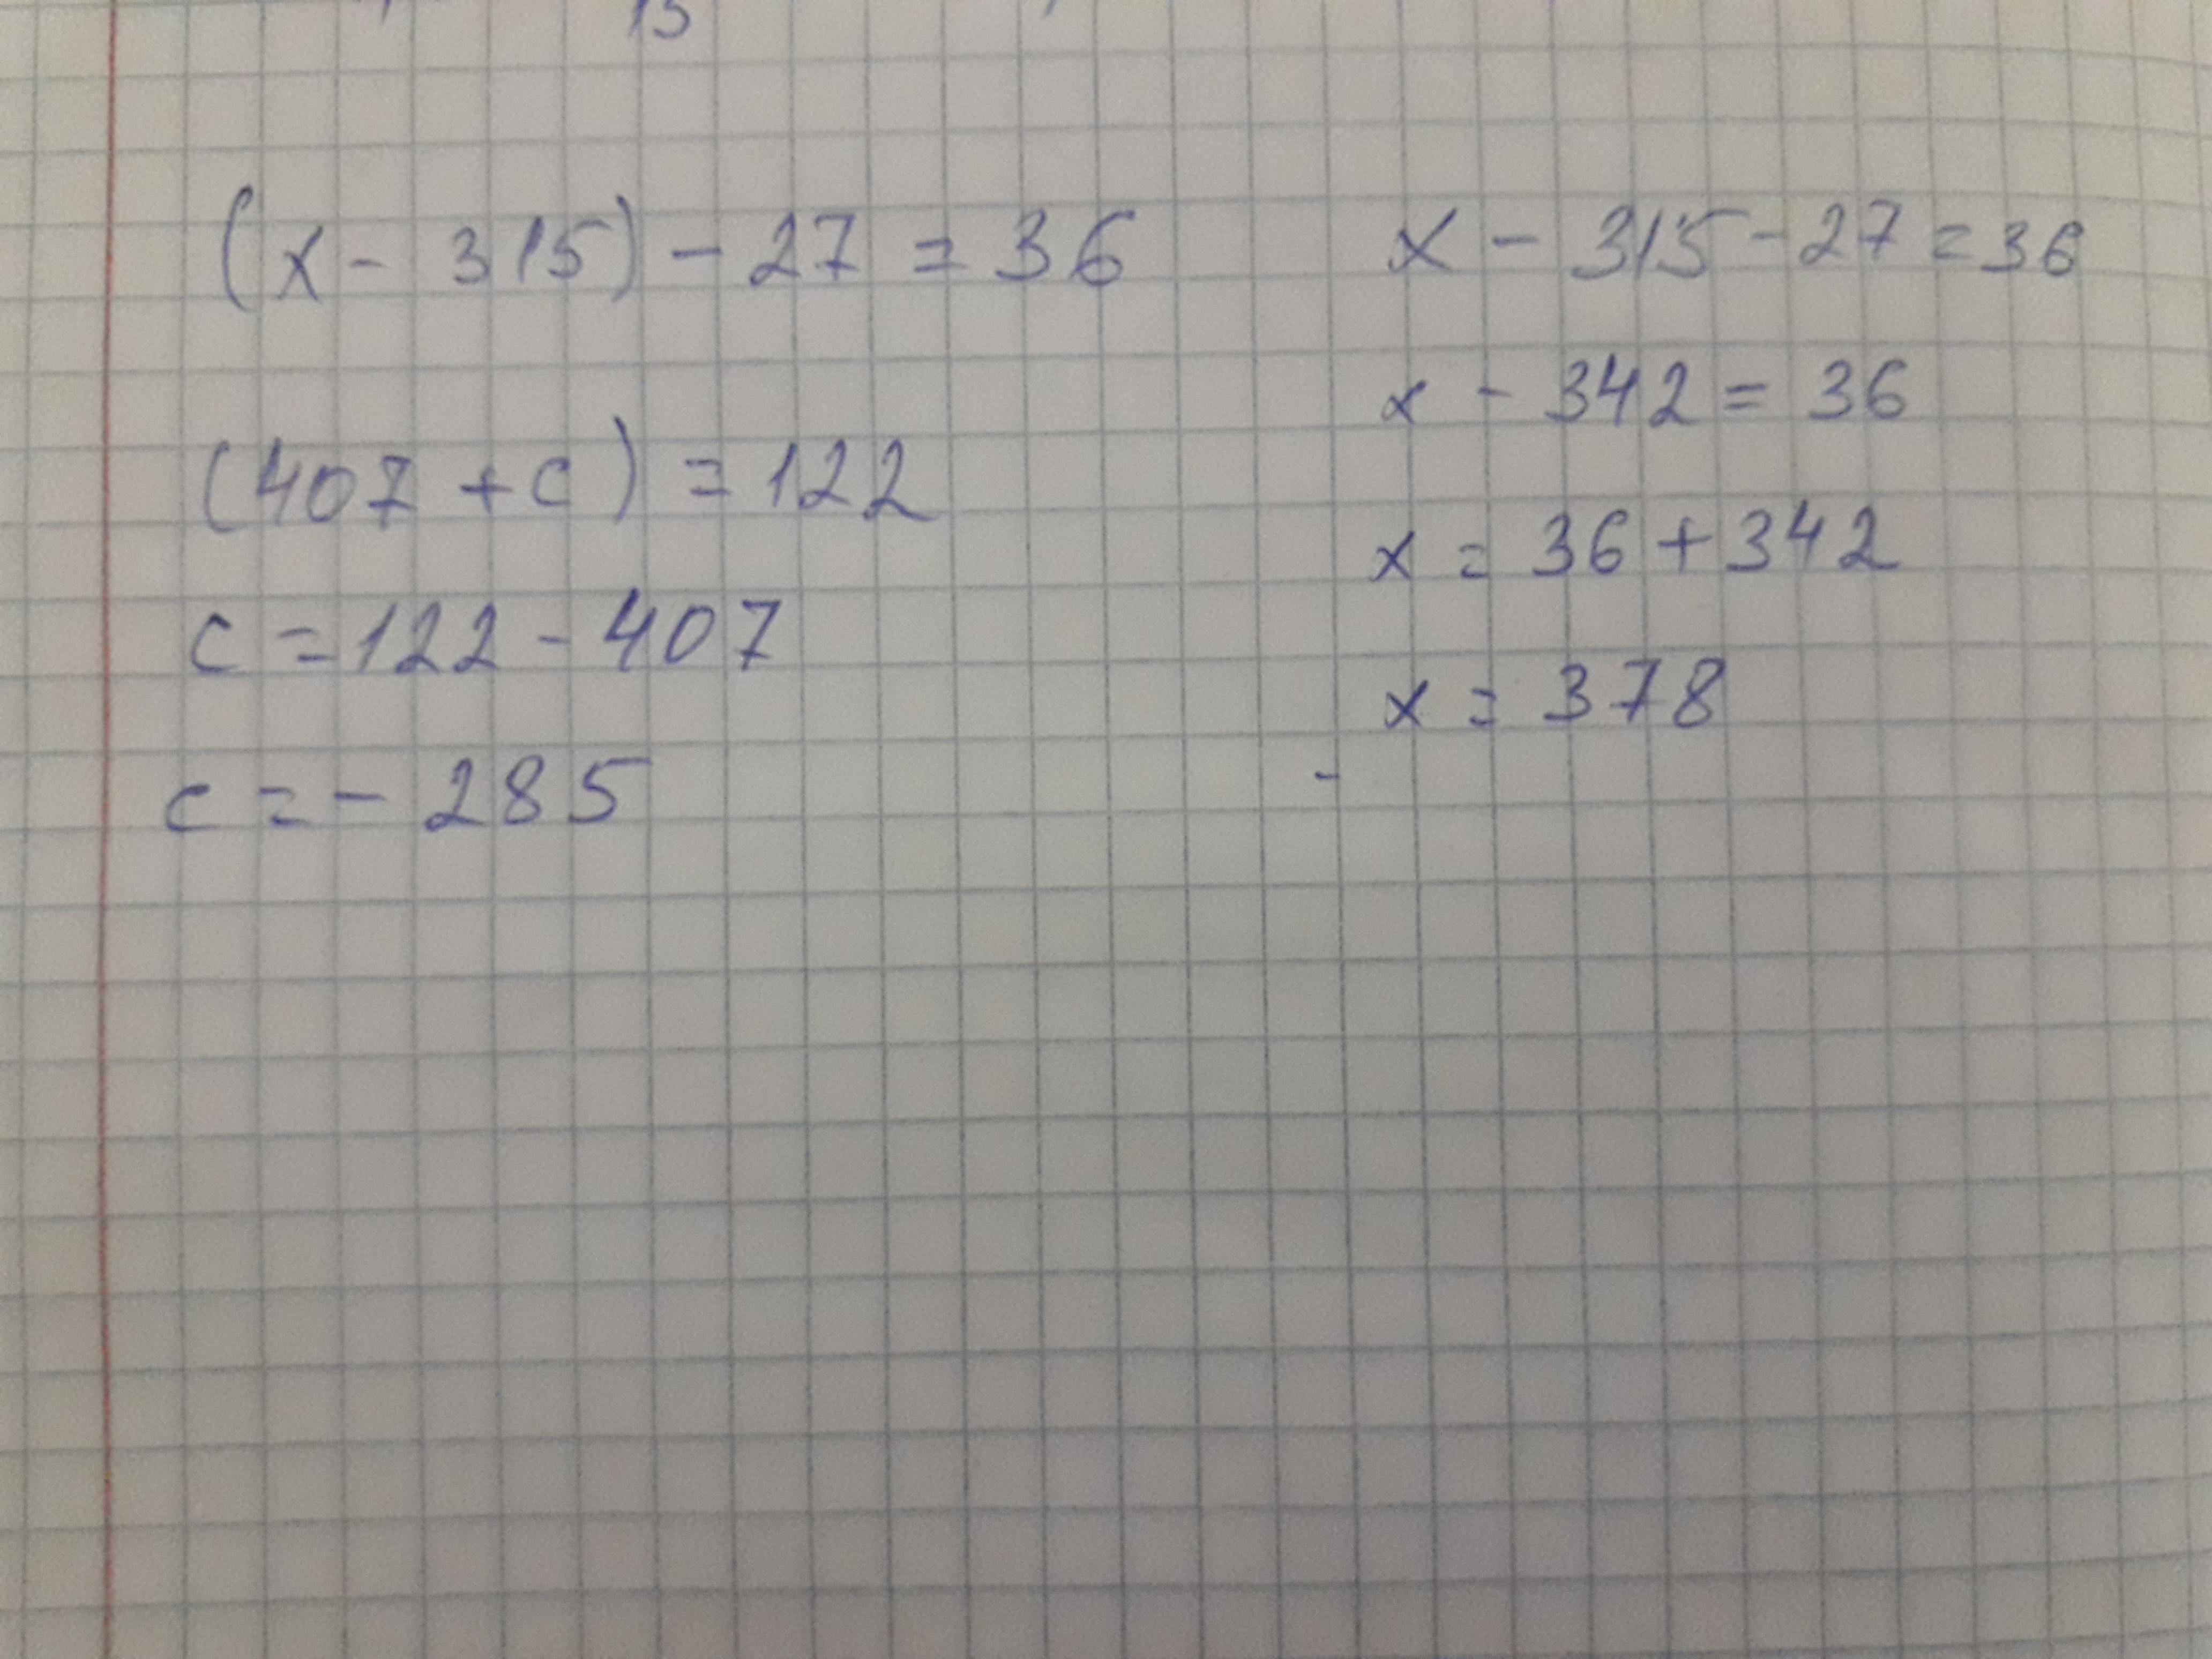 15
(x - 315) - 27 = 36
(407 + c) = 122
c = 122 - 407
c = - 285
x - 315 - 27 = 36
x - 342 = 36
x = 36 + 342
x = 378
-